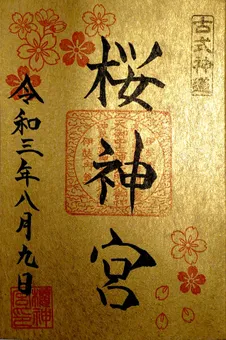 古式神道
桜神宮
令和三年八月九日